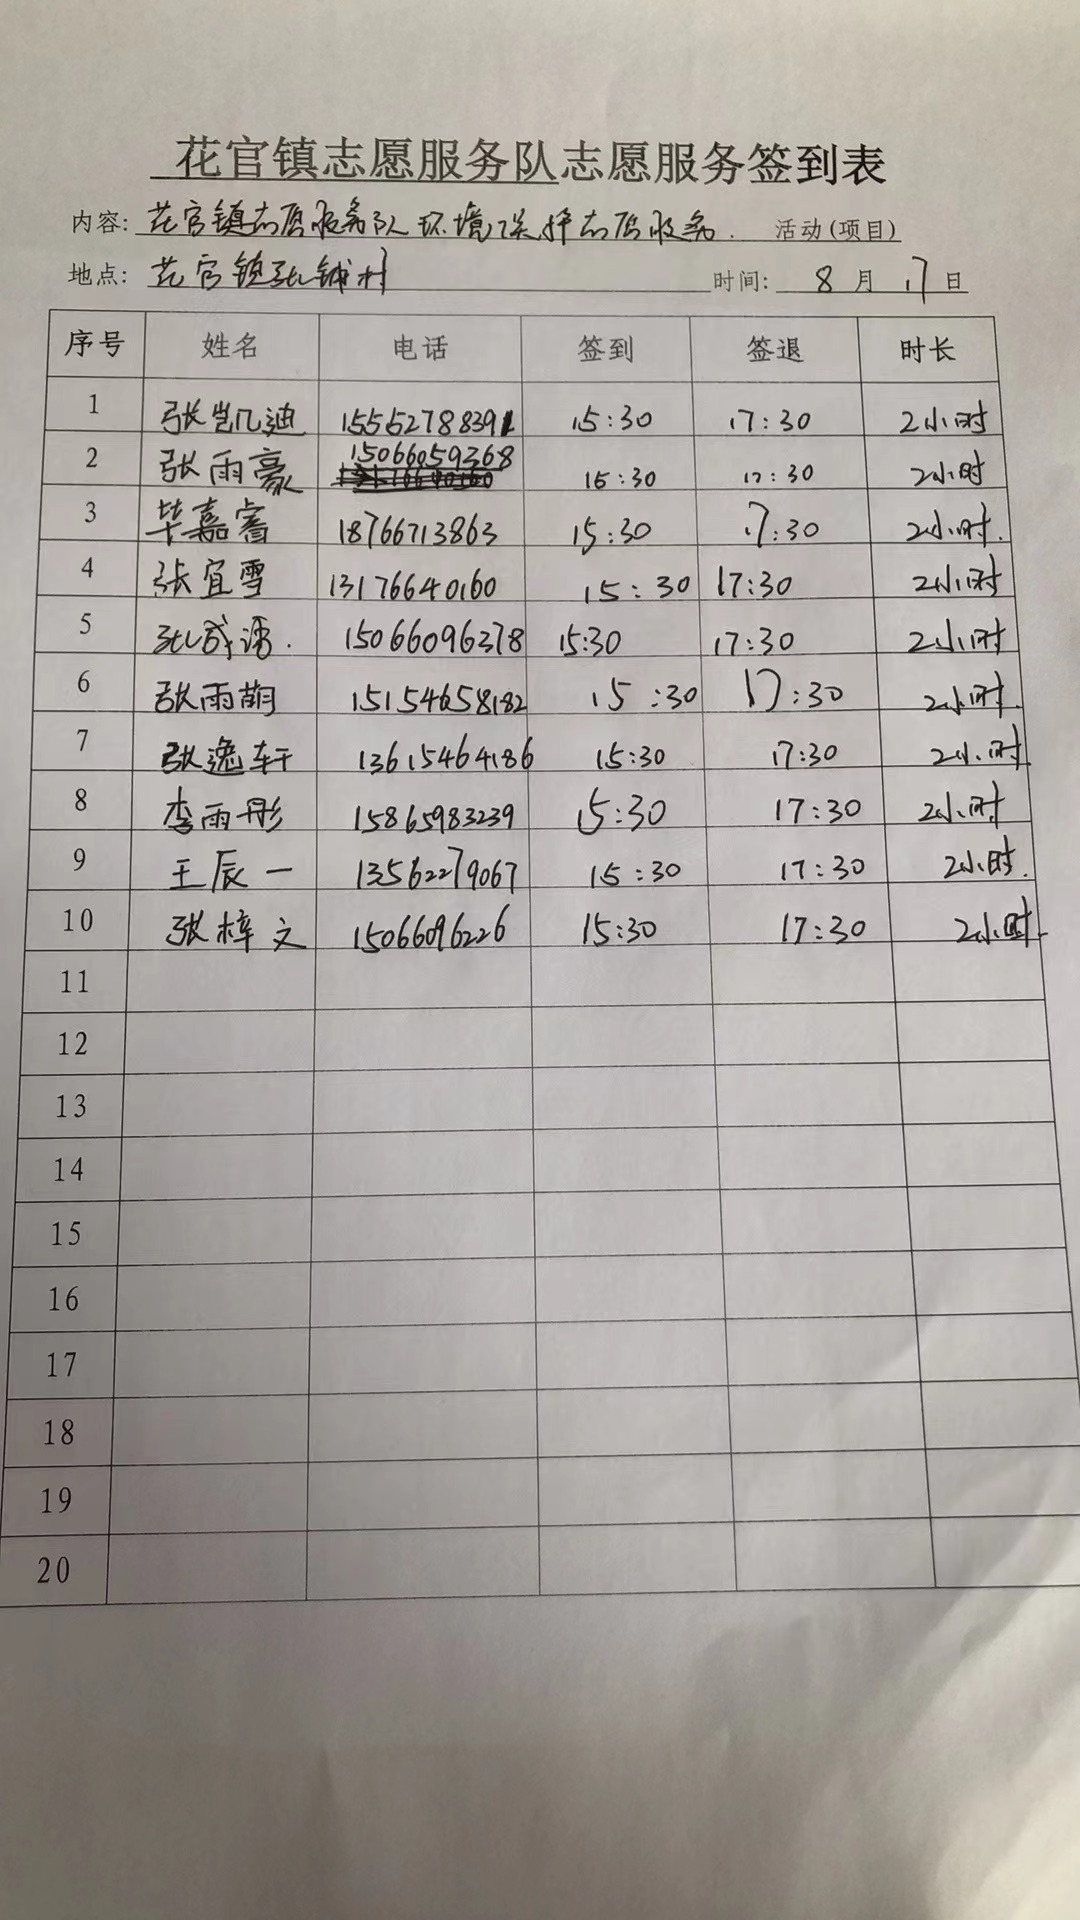 花官镇志愿服务队志愿服务签到表
内容: 花官镇志愿服务队环境保护志愿服务. 活动(项目)
地点: 花官镇张铺村 时间: 8 月 17 日
序号 姓名 电话 签到 签退 时长
1 张凯迪 15552788391 15:30 17:30 2小时
2 张雨豪 15066059368 15:30 17:30 2小时
3 毕嘉睿 18766713863 15:30 17:30 2小时.
4 张宜雪 13176640160 15:30 17:30 2小时
5 15066096378 15:30 17:30 2小时
6 张雨萌 15154658182 15:30 17:30 2小时.
7 张逸轩 13615464186 15:30 17:30 2小时
8 李雨彤 15865983239 15:30 17:30 2小时
9 王辰一 13562279067 15:30 17:30 2小时.
10 张梓文 15066096226 15:30 17:30 2小时.
11
12
13
14
15
16
17
18
19
20